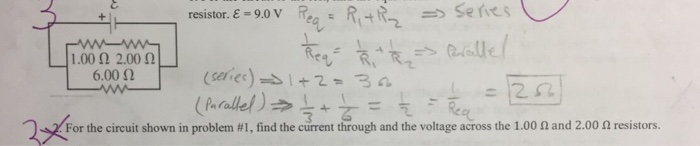 3
ε
+
resistor. ε = 9.0 V
Req = R₁ + R₂ ⇒ Series
1/Req = 1/R₁ + 1/R₂ ⇒ Parallel
1.00 Ω 2.00 Ω
6.00 Ω
(series) ⇒ 1 + 2 = 3 Ω
(Parallel) ⇒ 1/3 + 1/6 = 1/2 = 1/Req = 2 Ω
2. For the circuit shown in problem #1, find the current through and the voltage across the 1.00 Ω and 2.00 Ω resistors.